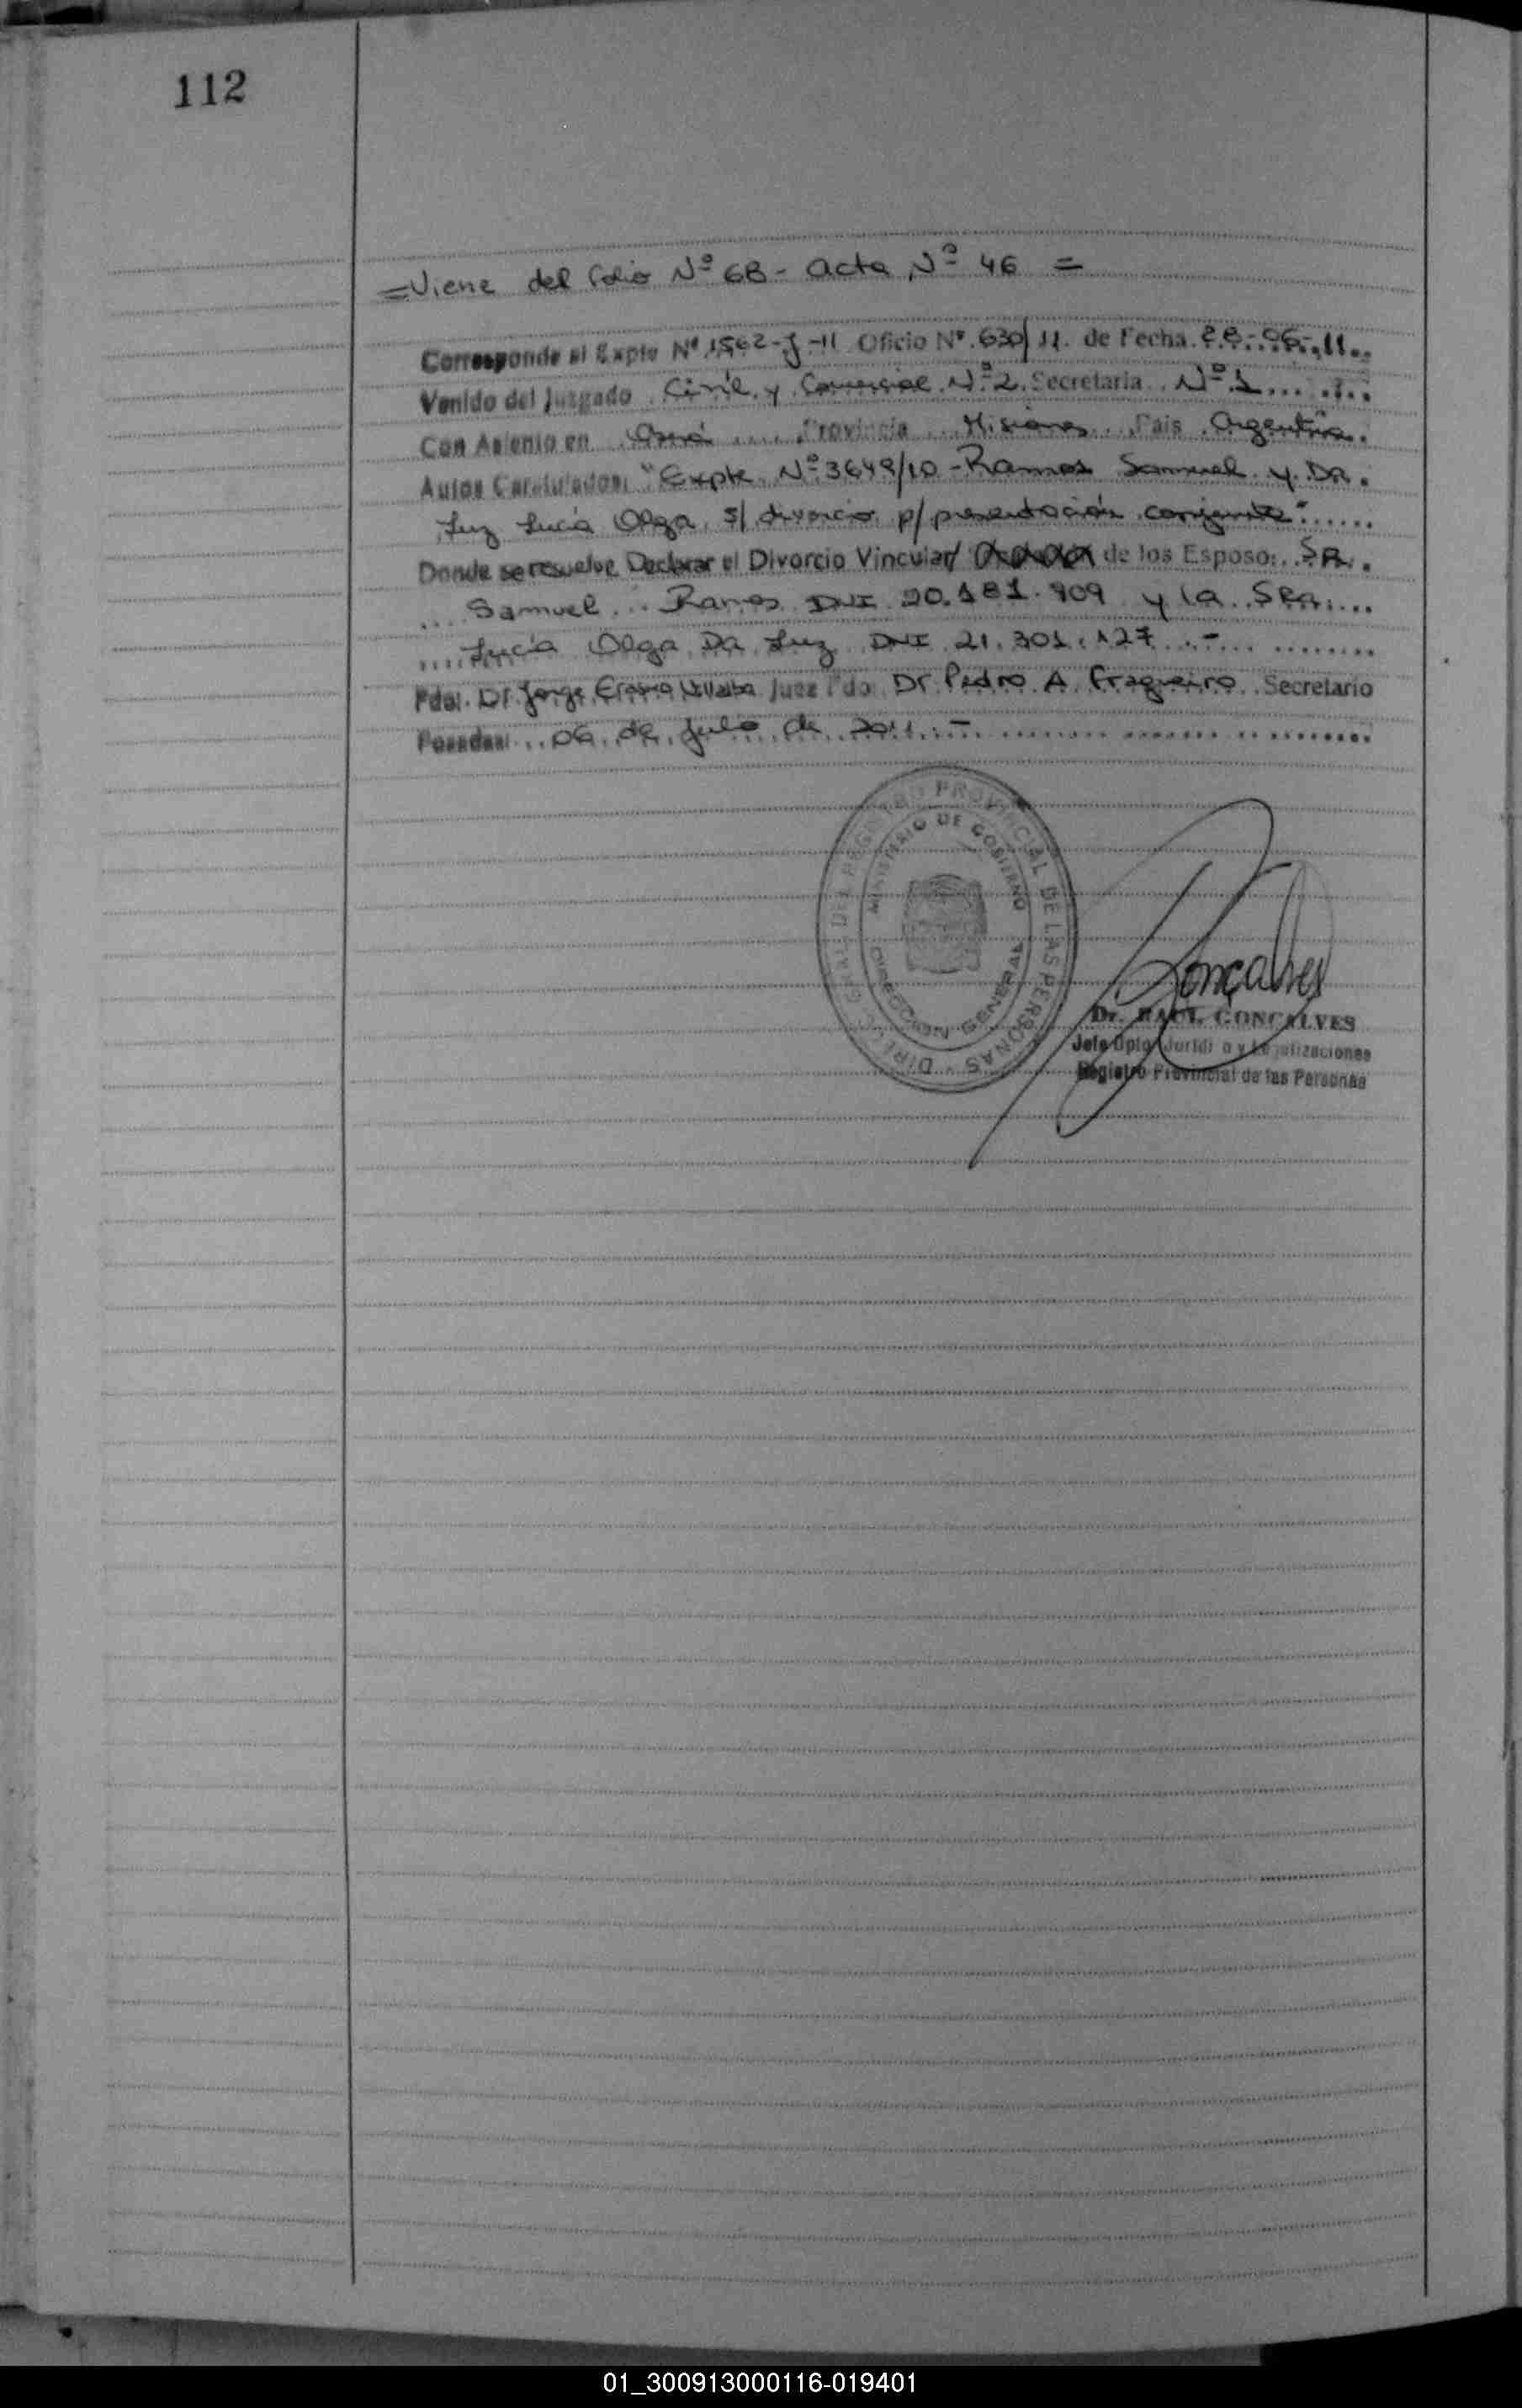 112
=Viene del folio Nº 68 - acta Nº 46 =
Corresponde al Expte Nº 1562-J-11 Oficio Nº. 630/11. de Fecha. 28-06-11..
Venido del Juzgado Civil y Comercial Nº 2. Secretaria.. Nº 1.......
Con Asiento en Oberá..... Provincia... Misiones.. Pais. Argentina.
Autos Caratulados: "Expte Nº 3649/10 - Ramos Samuel y. DA.
Luz Lucia Olga s/ divorcio p/ presentación conjunta"......
Donde se resuelve Declarar el Divorcio Vincular/ de los Esposo:..SR..
.... Samuel... Ramos DNI 20.181.909 y la SRA....
.... Lucia Olga Da Luz DNI 21.301.127..-.. ........
Fdo!. Dr. Jorge Villalba Juez Fdo Dr. Pedro A. Fragueiro. Secretario
Posadas:.. 06. de Julio de 2011. -
DIREC. GRAL. DEL REGISTRO PROVINCIAL DE LAS PERSONAS
MINISTERIO DE GOBIERNO
DIRECCION GENERAL
Gonçalves
Dr. RAUL GONCALVES
Jefe Dpto. Juridico y Legalizaciones
Registro Provincial de las Personas
01_300913000116-019401